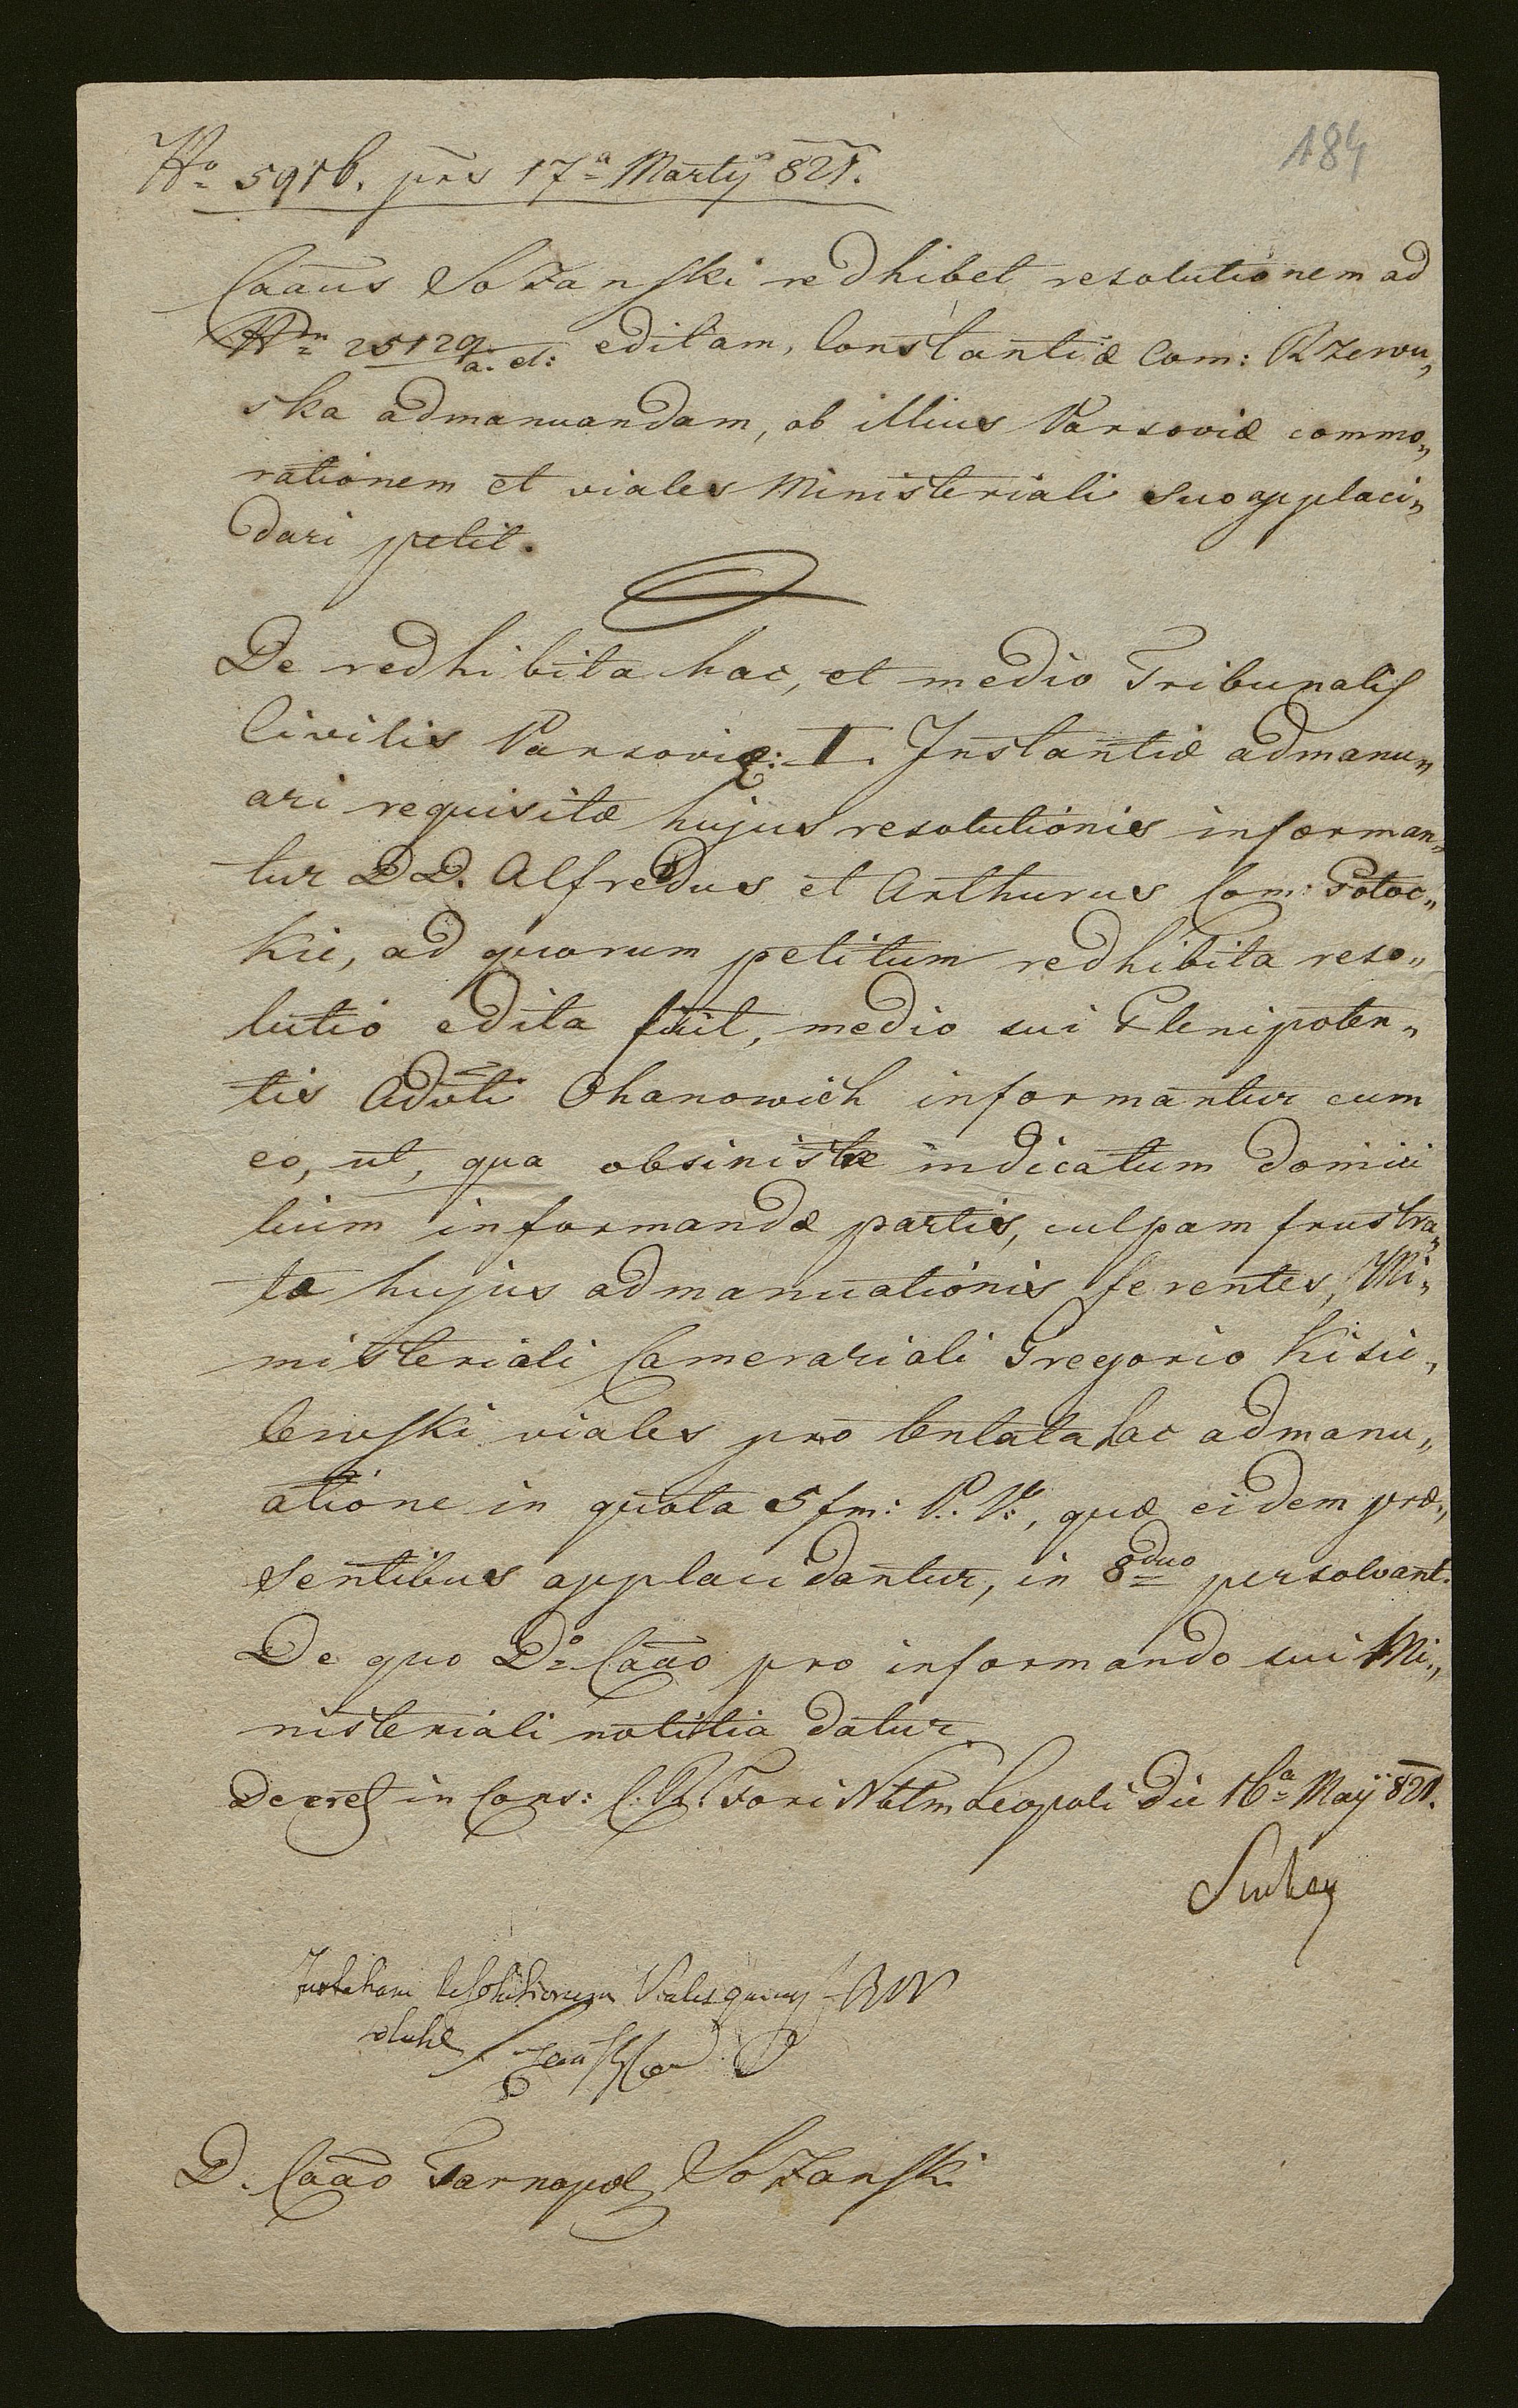 184
No 5916. prs 17a Martÿ 821.
Caãus Sozanski redhibet resolutionem ad
Nrm 25129 a. el: editam, Constantiæ Com: Rzewu„
ska admanuandam, ob illius Varsoviæ commo„
rationem et viales Ministeriali suo applaci„
dari petit.
De redhibita hac, et medio Tribunalis
Civilis Varsoviæ: I. Instantiæ admanu„
ari requisitæ hujus resolutionis informan„
tur DD. Alfredus et Arthurus Com: Potoc„
kii, ad quorum petitum redhibita reso„
lutio edita fuit, medio sui Plenipoten„
tis Advti Ohanowich informantur cum
eo, ut, qua obsinistre indicatum domici
lium informandæ partis, culpam frustra„
ta hujus admanuationis ferentes, Mi„
nisteriali Camerariali Gregorio Kisie„
lewski viales pro tentata hac admanu„
atione in quota 5 fm: V. V., quæ eidem præ„
sentibus applacidantur, in 8duo persolvant.
De quo Do Caão pro informando sui Mi„
nisteriali notitia datur.
Decret in Cons: C. R. Fori Nblm Leopoli die 16a Maÿ 821.
resolutionem Viales
D. Caão Tarnopol Sozanski